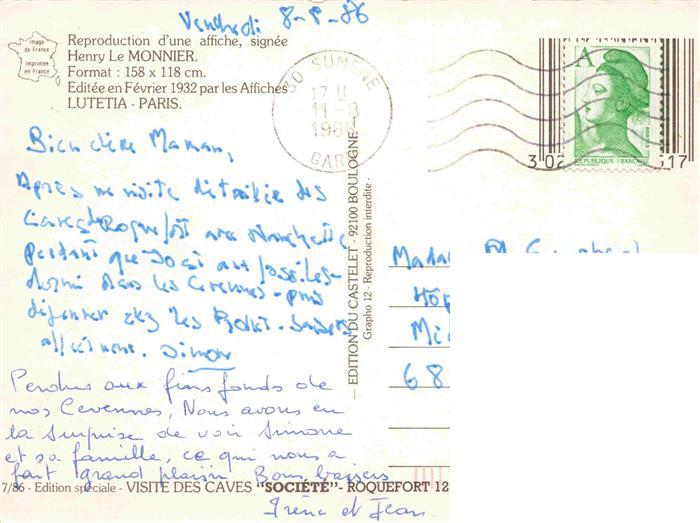 Vendredi 8-8-86
Image
de France
Imprimée
en France
Reproduction d'une affiche, signée
Henry Le MONNIER.
Format : 158 x 118 cm.
Editée en Février 1932 par les Affiches
LUTETIA - PARIS.
30 SUMENE
17 H
11-8
1986
GARD
A
REPUBLIQUE FRANÇAISE
302
517
Bien chère Maman,
Après une visite détaillée des
Caves de Roquefort avec
pendant que aux fossiles -
dormi dans les Cévennes - puis
déjeuner chez les
Simone
Perdus aux fins fonds de
nos Cevennes, Nous avons eu
la surprise de voir Simone
et sa famille, ce qui nous a
fait grand plaisir Bons baisers
Irène et Jean
EDITION DU CASTELET - 92100 BOULOGNE
Grapho 12 - Reproduction interdite -
Mada
Hôp
68
7/86 - Edition spéciale - VISITE DES CAVES "SOCIÉTÉ" - ROQUEFORT 12